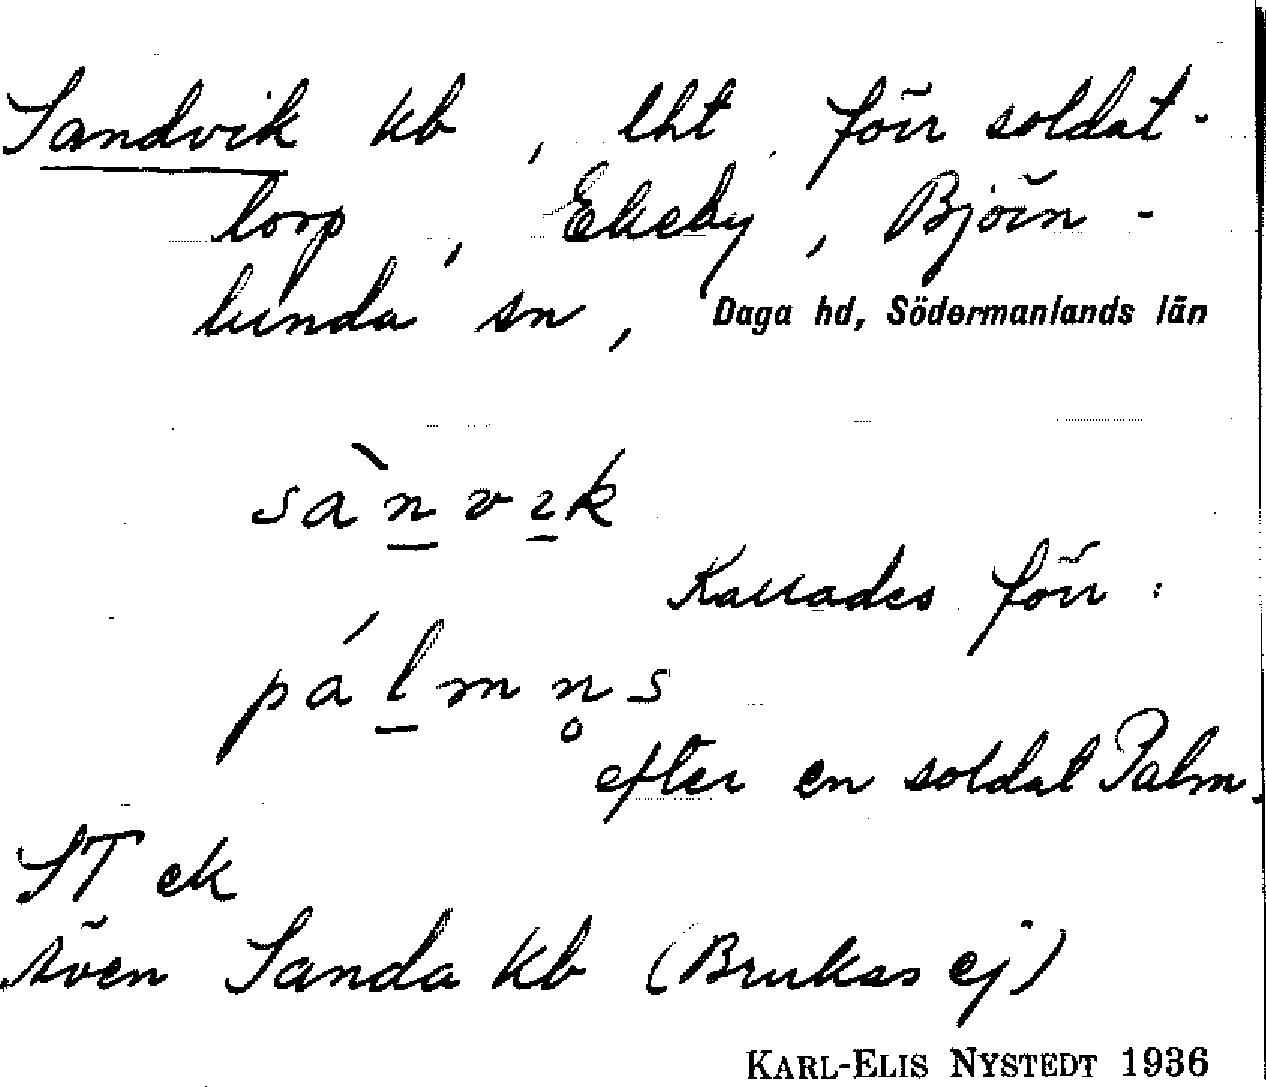 Sandvik kb, lht, förr soldat-
torp, Ekeby, Björn-
lunda sn, Daga hd, Södermanlands län
sànvık
Kallades förr:
pálmn̥s
efter en soldat Palm.
ST ek
Även Sanda kb (Brukas ej)
KARL-ELIS NYSTEDT 1936